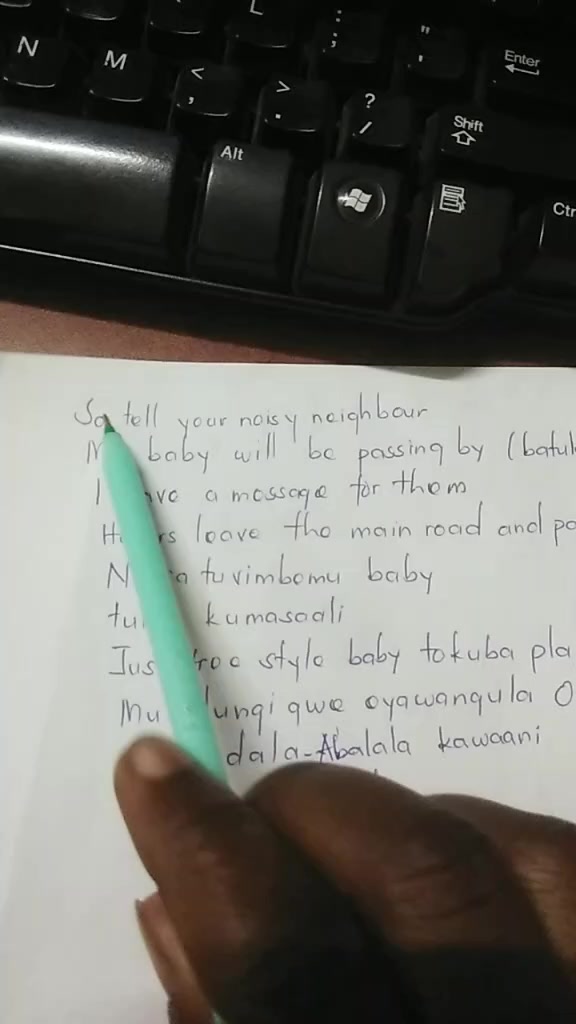 L
N M < , > . ? / : ; " ' Enter
Alt Shift Ctr
So tell your noisy neighbour
baby will be passing by (batuk
I a message for them
leave the main road and pa
tuvimbomu baby
kumasaali
style baby tokuba pla
gwe oyawangula O
dala-Abalala kawaani